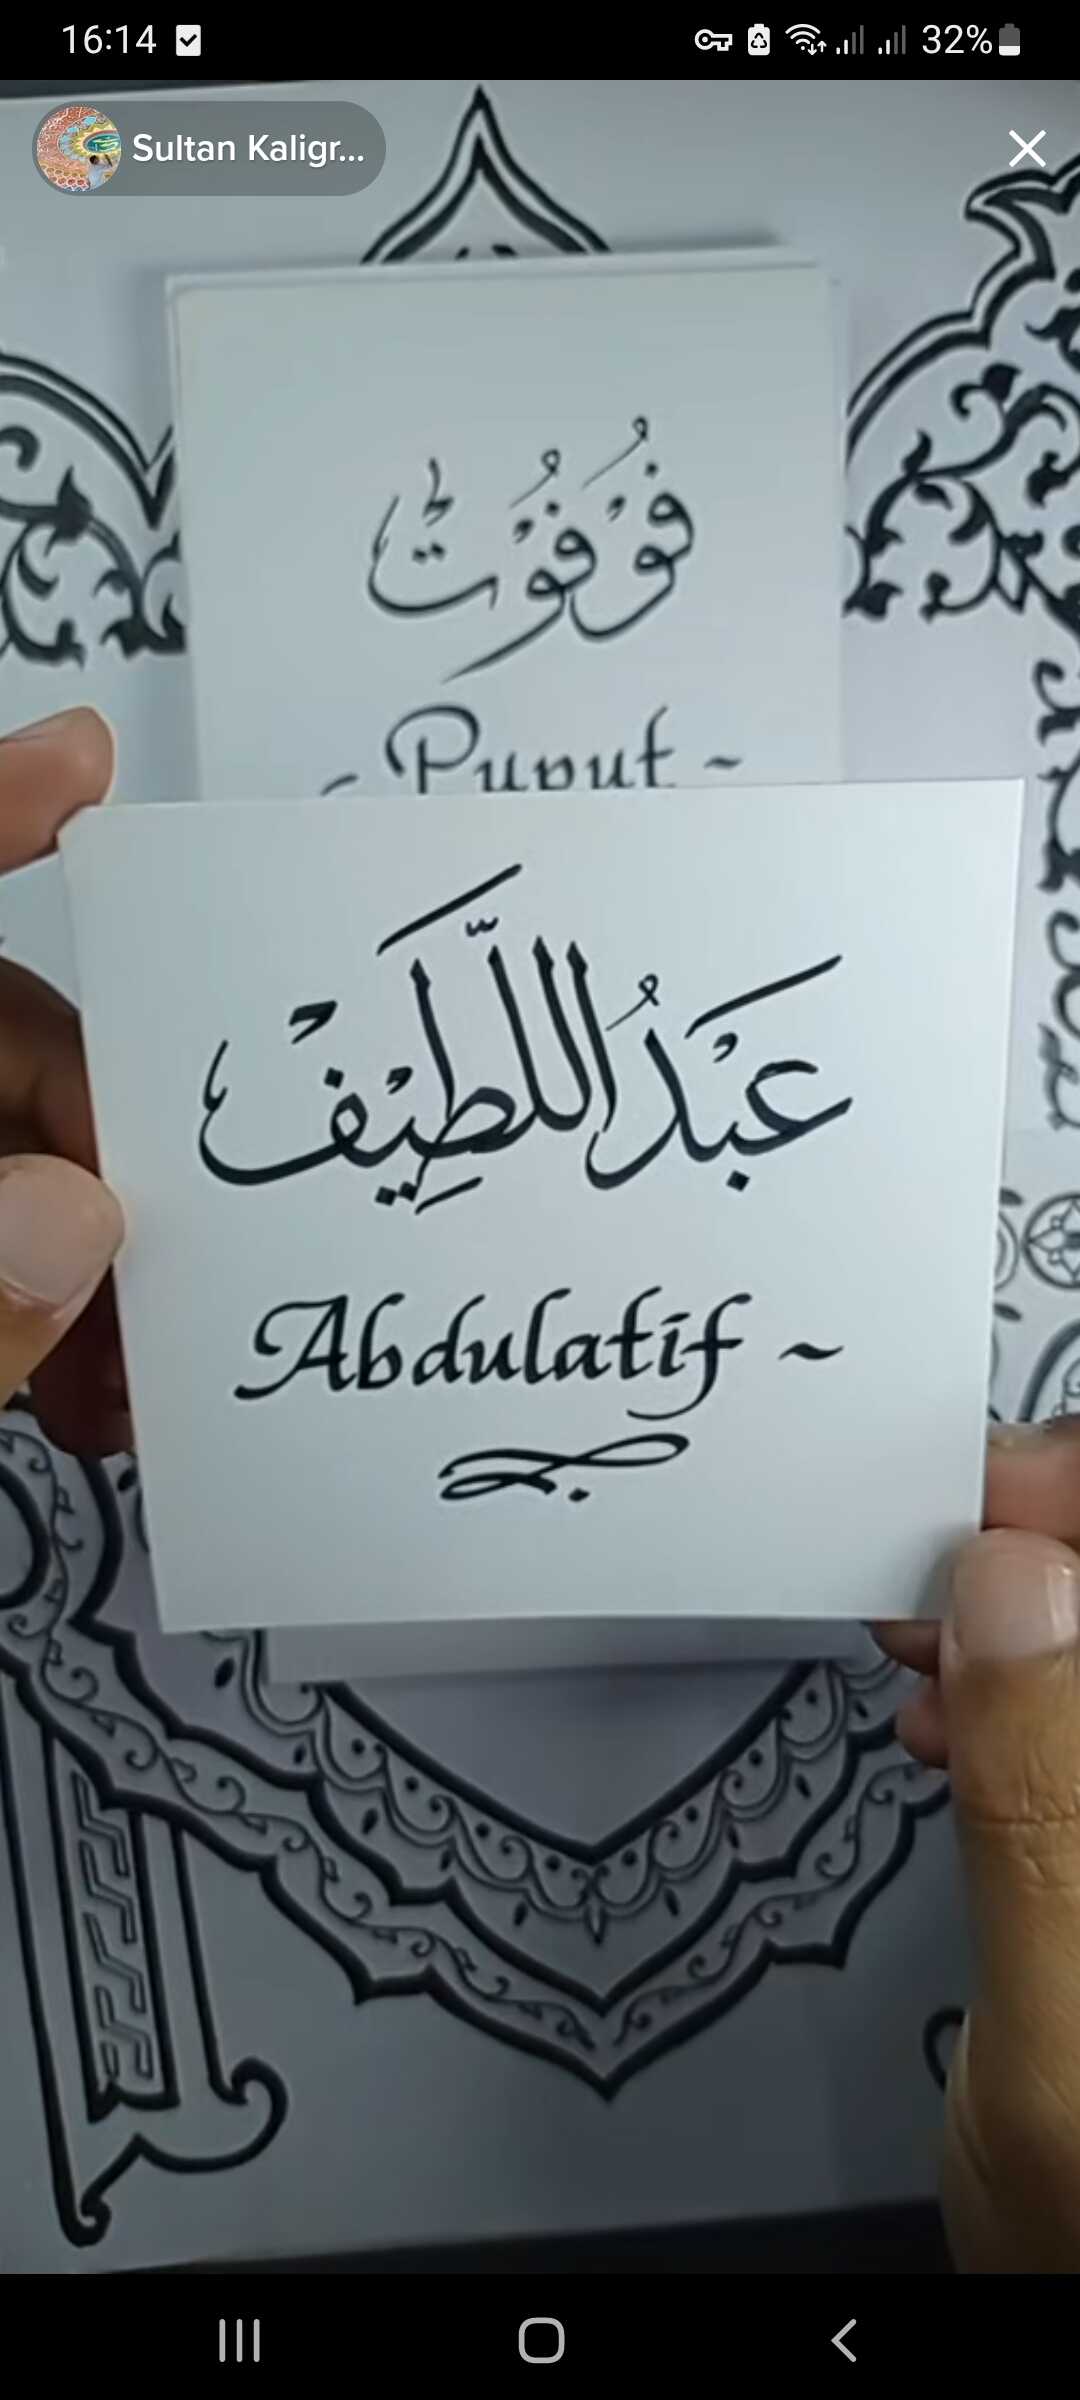 16:14
32%
Sultan Kaligr...
فُوْفُوْت
- Puput -
عَبْدُ اللَّطِيْفْ
Abdulatif ~